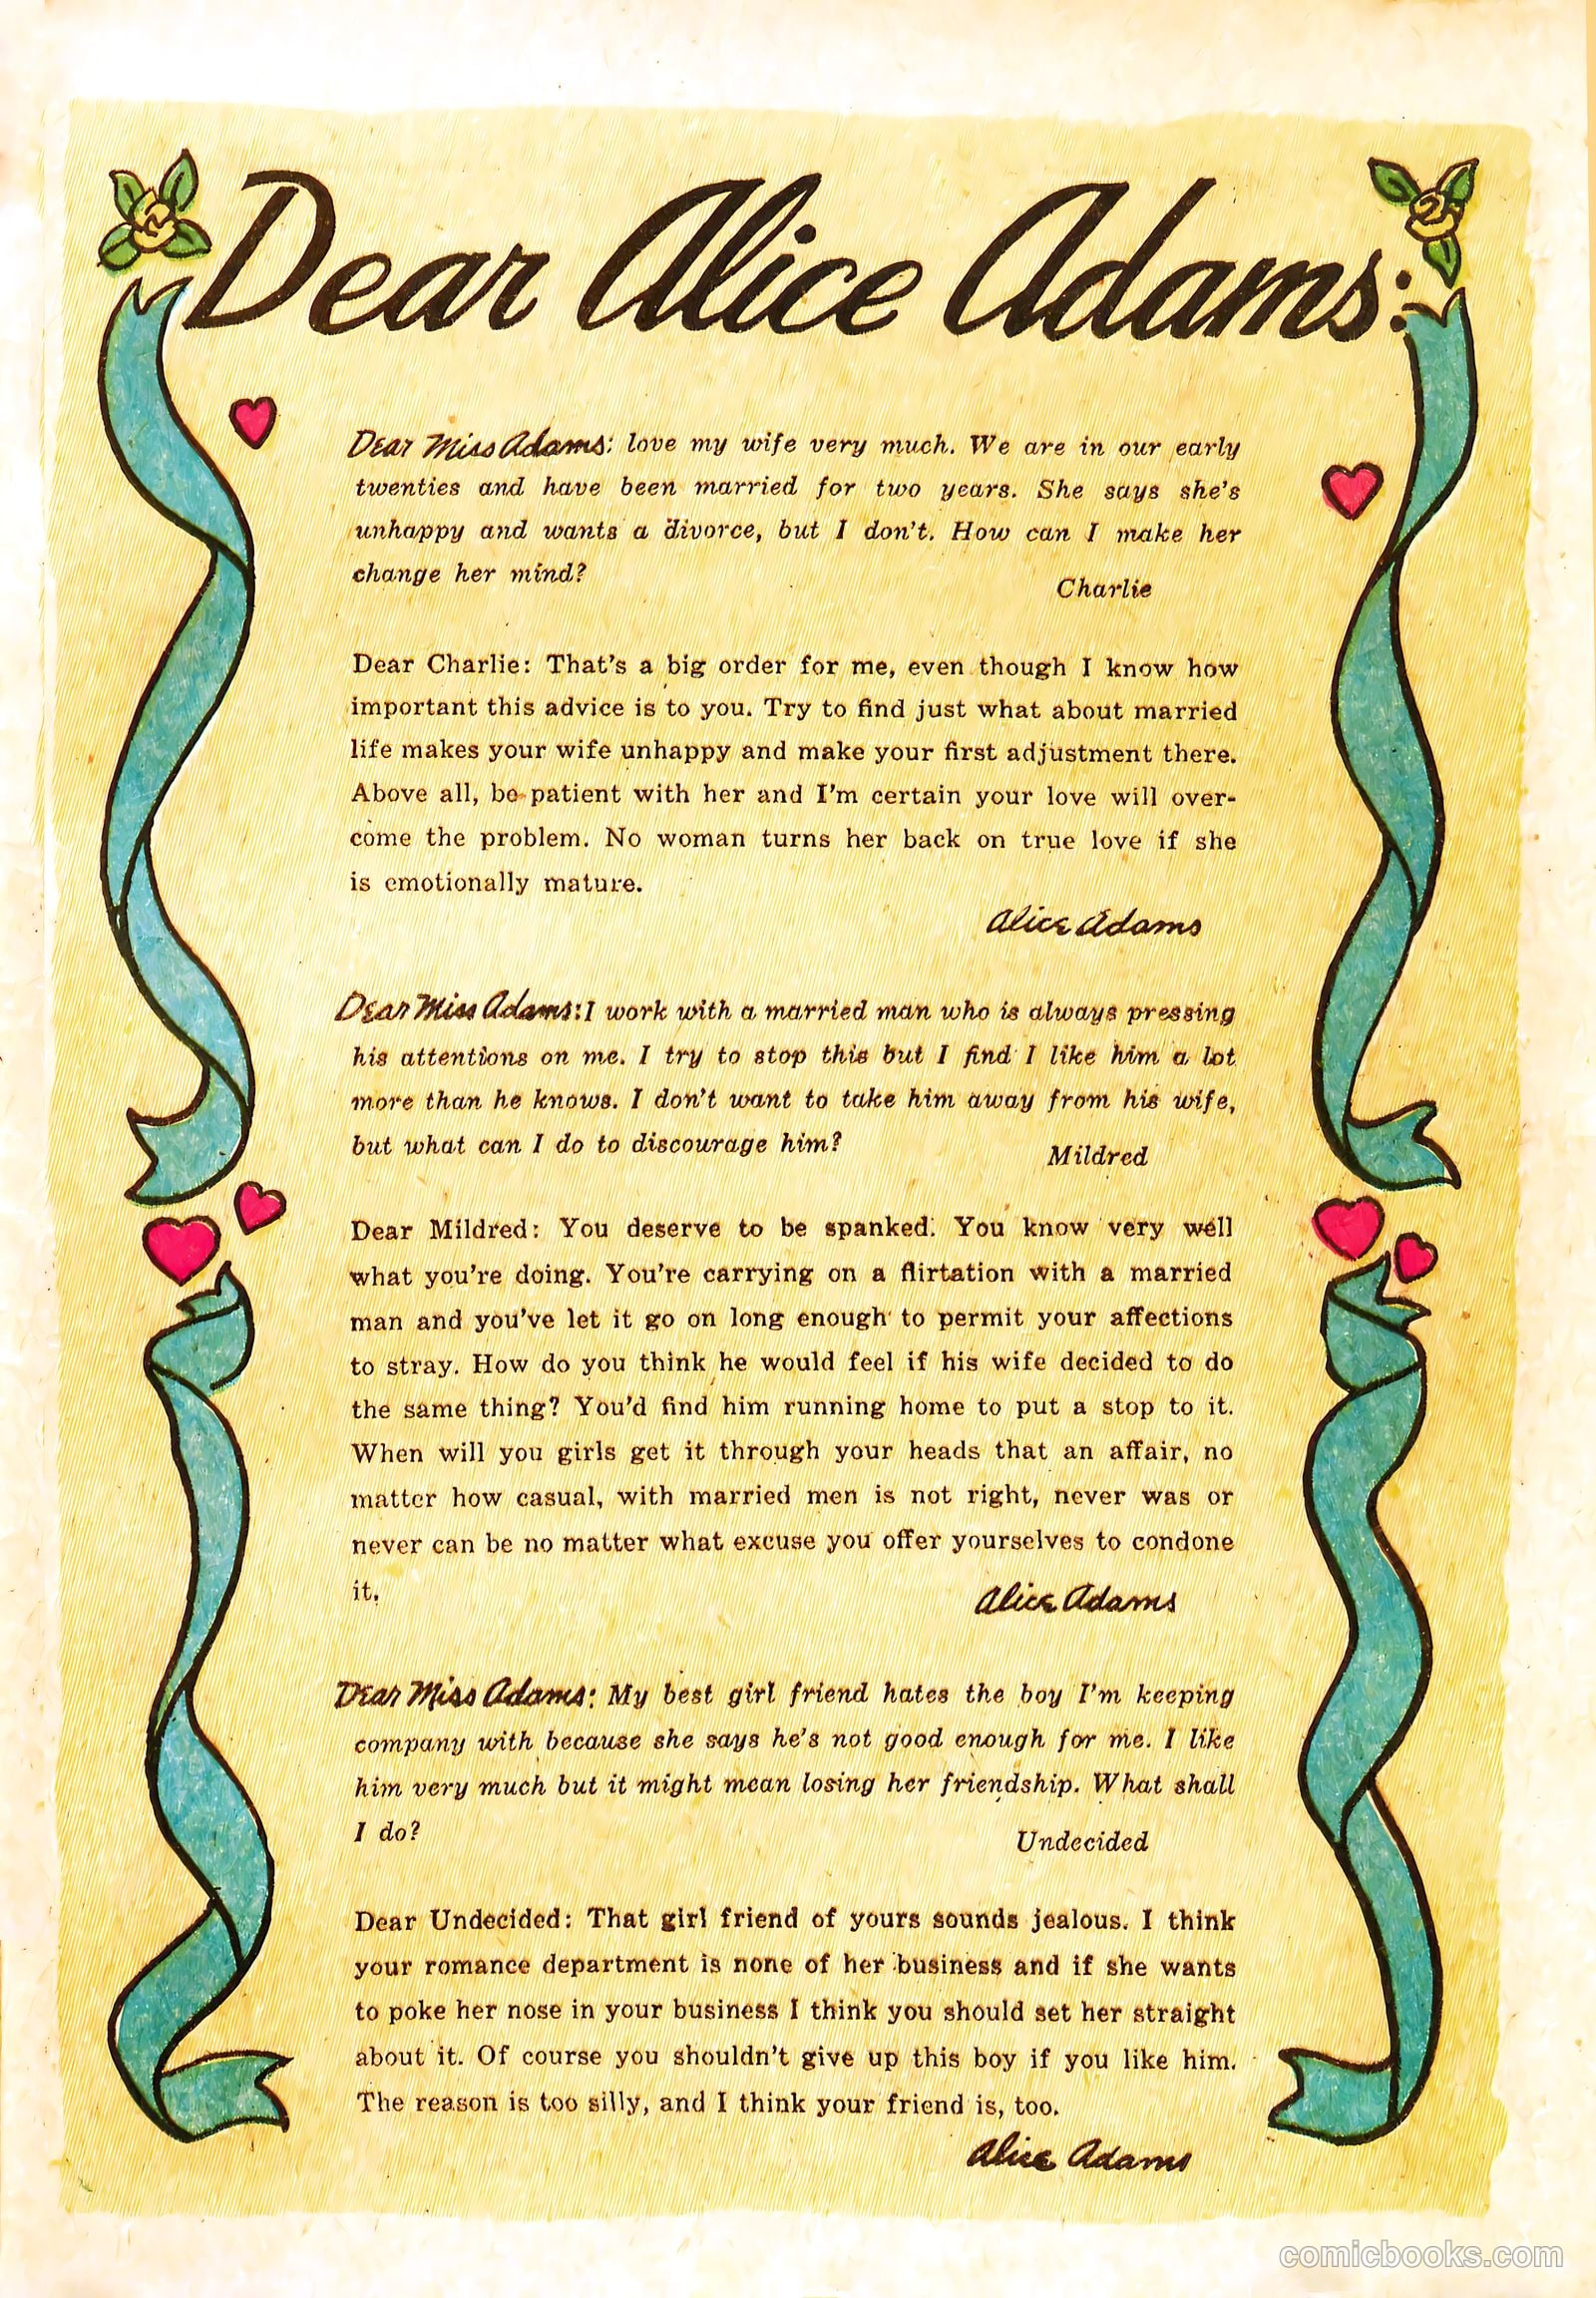 Dear Alice Adams:
Dear Miss Adams: love my wife very much. We are in our early
twenties and have been married for two years. She says she's
unhappy and wants a divorce, but I don't. How can I make her
change her mind?
Charlie
Dear Charlie: That's a big order for me, even though I know how
important this advice is to you. Try to find just what about married
life makes your wife unhappy and make your first adjustment there.
Above all, be patient with her and I'm certain your love will over-
come the problem. No woman turns her back on true love if she
is emotionally mature.
Alice Adams
Dear Miss Adams: I work with a married man who is always pressing
his attentions on me. I try to stop this but I find I like him a lot
more than he knows. I don't want to take him away from his wife,
but what can I do to discourage him?
Mildred
Dear Mildred: You deserve to be spanked. You know very well
what you're doing. You're carrying on a flirtation with a married
man and you've let it go on long enough to permit your affections
to stray. How do you think he would feel if his wife decided to do
the same thing? You'd find him running home to put a stop to it.
When will you girls get it through your heads that an affair, no
matter how casual, with married men is not right, never was or
never can be no matter what excuse you offer yourselves to condone
it.
Alice Adams
Dear Miss Adams: My best girl friend hates the boy I'm keeping
company with because she says he's not good enough for me. I like
him very much but it might mean losing her friendship. What shall
I do?
Undecided
Dear Undecided: That girl friend of yours sounds jealous. I think
your romance department is none of her business and if she wants
to poke her nose in your business I think you should set her straight
about it. Of course you shouldn't give up this boy if you like him.
The reason is too silly, and I think your friend is, too.
Alice Adams
comicbooks.com